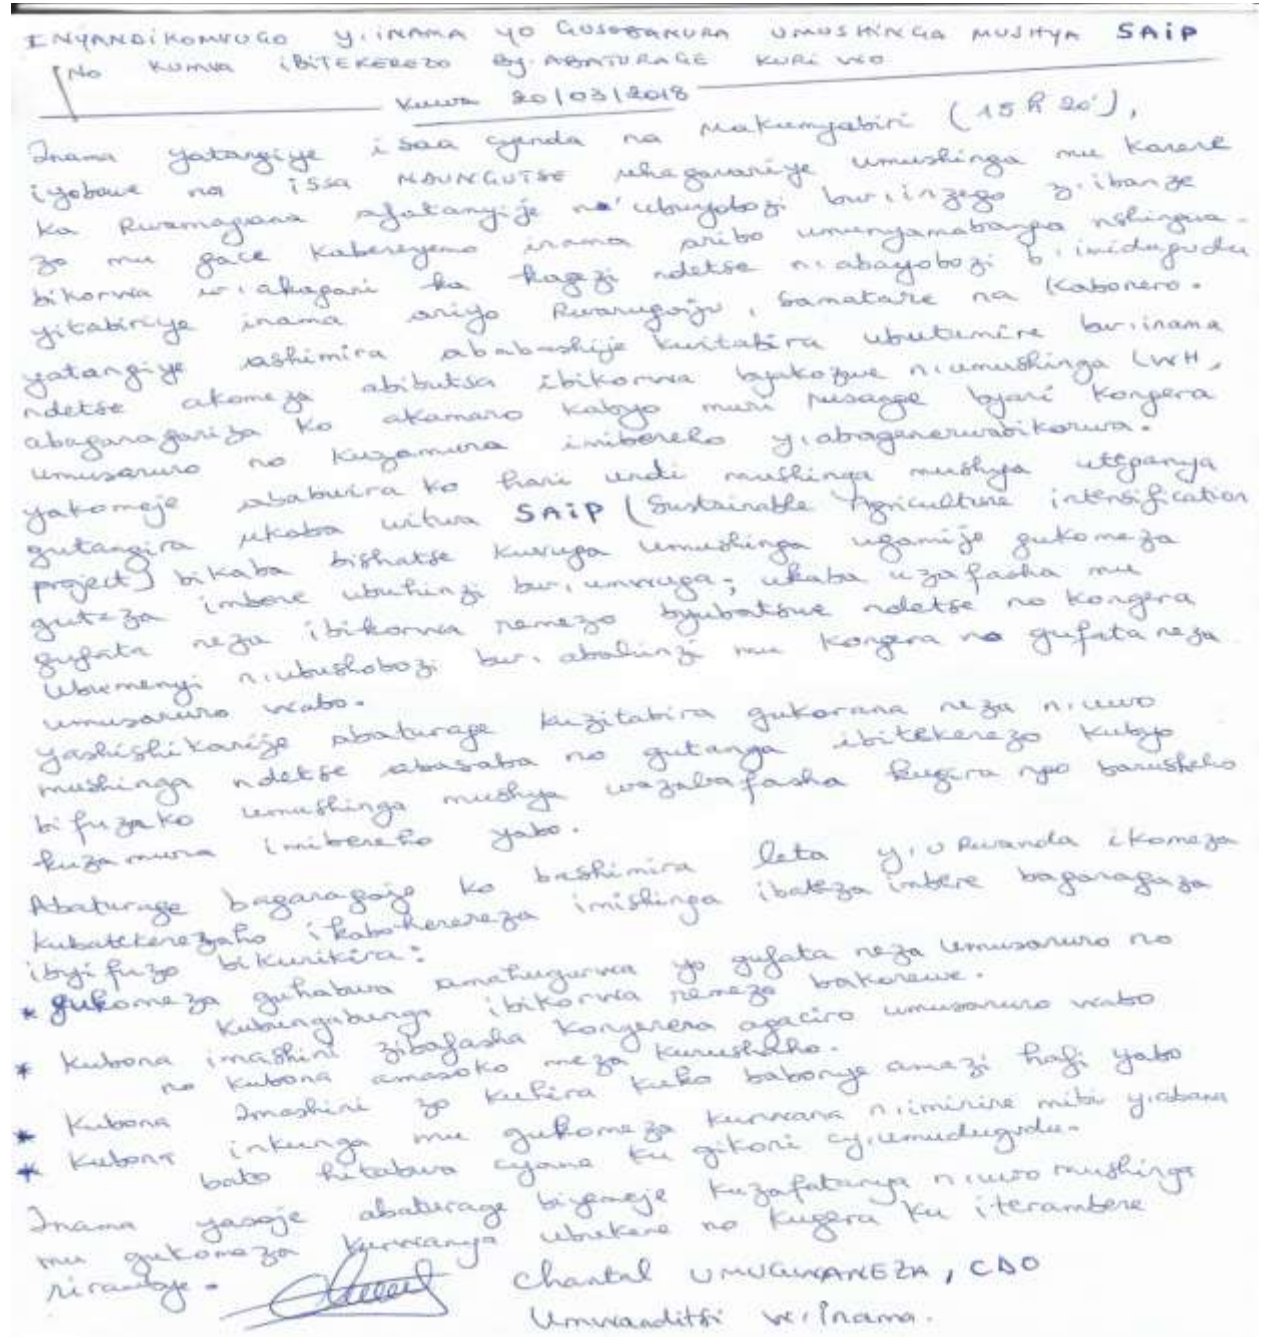 INYANDIKOMVUGO Y'INAMA YO GUSOBANURA UMUSHINGA MUSHYA SAIP
NO KUMVA IBITEKEREZO BY'ABATURAGE KURI WO
Kuwa 20/03/2018
Inama yatangiye i saa cyenda na Makumyabiri (15h20'),
iyobowe na ISSA NDUNGUTSE uhagarariye umushinga mu karere
ka Rwamagana afatanyije n'ubuyobozi bw'inzego z'ibanze
zo mu gace kabereyemo inama aribo umunyamabanga nshingwa-
bikorwa w'akagari ka Kagezi ndetse n'abayobozi b'imidugudu
yitabiriye inama ariyo Rwarugaju, Samatare na Kabonero.
yatangiye ashimira ababashije kwitabira ubutumire bw'inama
ndetse akomeza abibutsa ibikorwa byakozwe n'umushinga LWH,
abagaragariza ko akamaro kabyo muri rusange byari kongera
umusaruro no kuzamura imibereho y'abagenerwabikorwa.
yakomeje ababwira ko hari undi mushinga mushya uteganya
gutangira ukaba witwa SAIP (Sustainable Agriculture intensification
project) bikaba bishatse kuvuga umushinga ugamije gukomeza
guteza imbere ubuhinzi bw'umwuga; ukaba uzafasha mu
gufata neza ibikorwa remezo byubatswe ndetse no kongera
Ubumenyi n'ubushobozi bw'abahinzi mu kongera no gufata neza
umusaruro wabo.
yashishikarije abaturage kuzitabira gukorana neza n'uwo
mushinga ndetse abasaba no gutanga ibitekerezo kubyo
bifuzako umushinga mushya wazabafasha kugira ngo barusheho
kuzamura imibereho yabo.
Abaturage bagaragaje ko bashimira leta y'u Rwanda ikomeza
kubatekerezaho ikaboherereza imishinga ibateza imbere bagaragaza
ibyifuzo bikurikira:
* gukomeza guhabwa amahugurwa yo gufata neza umusaruro no
kubungabunga ibikorwa remezo bakorewe.
* Kubona imashini zibafasha kongerera agaciro umusaruro wabo
no kubona amasoko meza kurushaho.
* Kubona Imashini zo kuhira kuko babonye amazi hafi yabo
* Kubona inkunga mu gukomeza kurwana n'imirire mibi y'abana
bato hitabwa cyane ku gikoni cy'umudugudu.
Inama yasoje abaturage biyemeje kuzafatanya n'uwo mushinga
mu gukomeza kurwanya ubukene no kugera ku iterambere
rirambye.
Chantal UMUGWANEZA, CDO
Umwanditsi w'Inama.